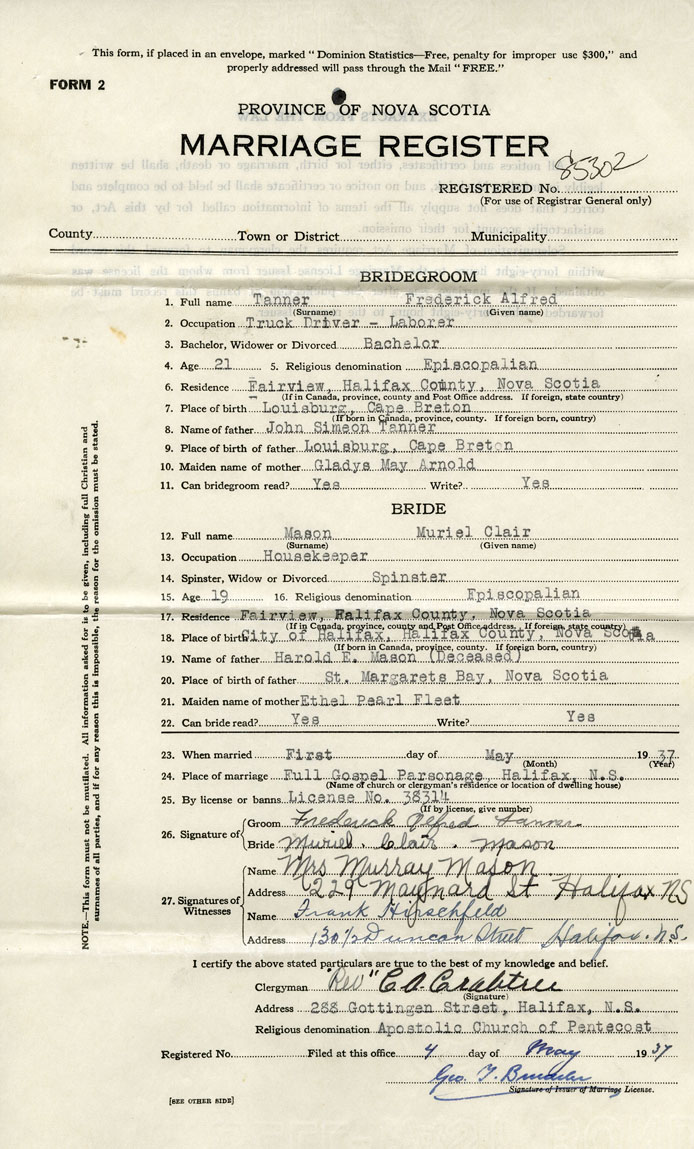 This form, if placed in an envelope, marked "Dominion Statistics—Free, penalty for improper use $300," and
properly addressed will pass through the Mail "FREE."
FORM 2
PROVINCE OF NOVA SCOTIA
MARRIAGE REGISTER
85302
REGISTERED No.
(For use of Registrar General only)
County Town or District Municipality
BRIDEGROOM
1. Full name Tanner Frederick Alfred
(Surname) (Given name)
2. Occupation Truck Driver - Laborer
3. Bachelor, Widower or Divorced Bachelor
4. Age 21 5. Religious denomination Episcopalian
6. Residence Fairview, Halifax County, Nova Scotia
(If in Canada, province, county and Post Office address. If foreign, state country)
7. Place of birth Louisburg, Cape Breton
(If born in Canada, province, county. If foreign born, country)
8. Name of father John Simeon Tanner
9. Place of birth of father Louisburg, Cape Breton
10. Maiden name of mother Gladys May Arnold
11. Can bridegroom read? Yes Write? Yes
BRIDE
12. Full name Mason Muriel Clair
(Surname) (Given name)
13. Occupation Housekeeper
14. Spinster, Widow or Divorced Spinster
15. Age 19 16. Religious denomination Episcopalian
17. Residence Fairview, Halifax County, Nova Scotia
(If in Canada, province, county and Post Office address. If foreign, state country)
18. Place of birth City of Halifax, Halifax County, Nova Scotia
(If born in Canada, province, county. If foreign born, country)
19. Name of father Harold E. Mason (Deceased)
20. Place of birth of father St. Margarets Bay, Nova Scotia
21. Maiden name of mother Ethel Pearl Fleet
22. Can bride read? Yes Write? Yes
23. When married First day of May 1937
(Month) (Year)
24. Place of marriage Full Gospel Parsonage, Halifax, N.S.
(Name of church or clergyman's residence or location of dwelling house)
25. By license or banns License No. 38314
(If by license, give number)
26. Signature of Groom Frederick Alfred Tanner
Bride Muriel Clair Mason
27. Signatures of Witnesses Name Mrs Murray Mason
Address 229 Maynard St Halifax NS
Name Frank Hirschfeld
Address 130½ Duncan Street Halifax. N.S.
I certify the above stated particulars are true to the best of my knowledge and belief.
Clergyman "Rev" C.A. Crabtree
(Signature)
Address 288 Gottingen Street, Halifax, N.S.
Religious denomination Apostolic Church of Pentecost
Registered No. Filed at this office 4 day of May 1937
Geo. T.
Signature of Issuer of Marriage License.
[SEE OTHER SIDE]
NOTE.—This form must not be mutilated. All information asked for is to be given, including full Christian and
surnames of all parties, and if for any reason this is impossible, the reason for the omission must be stated.